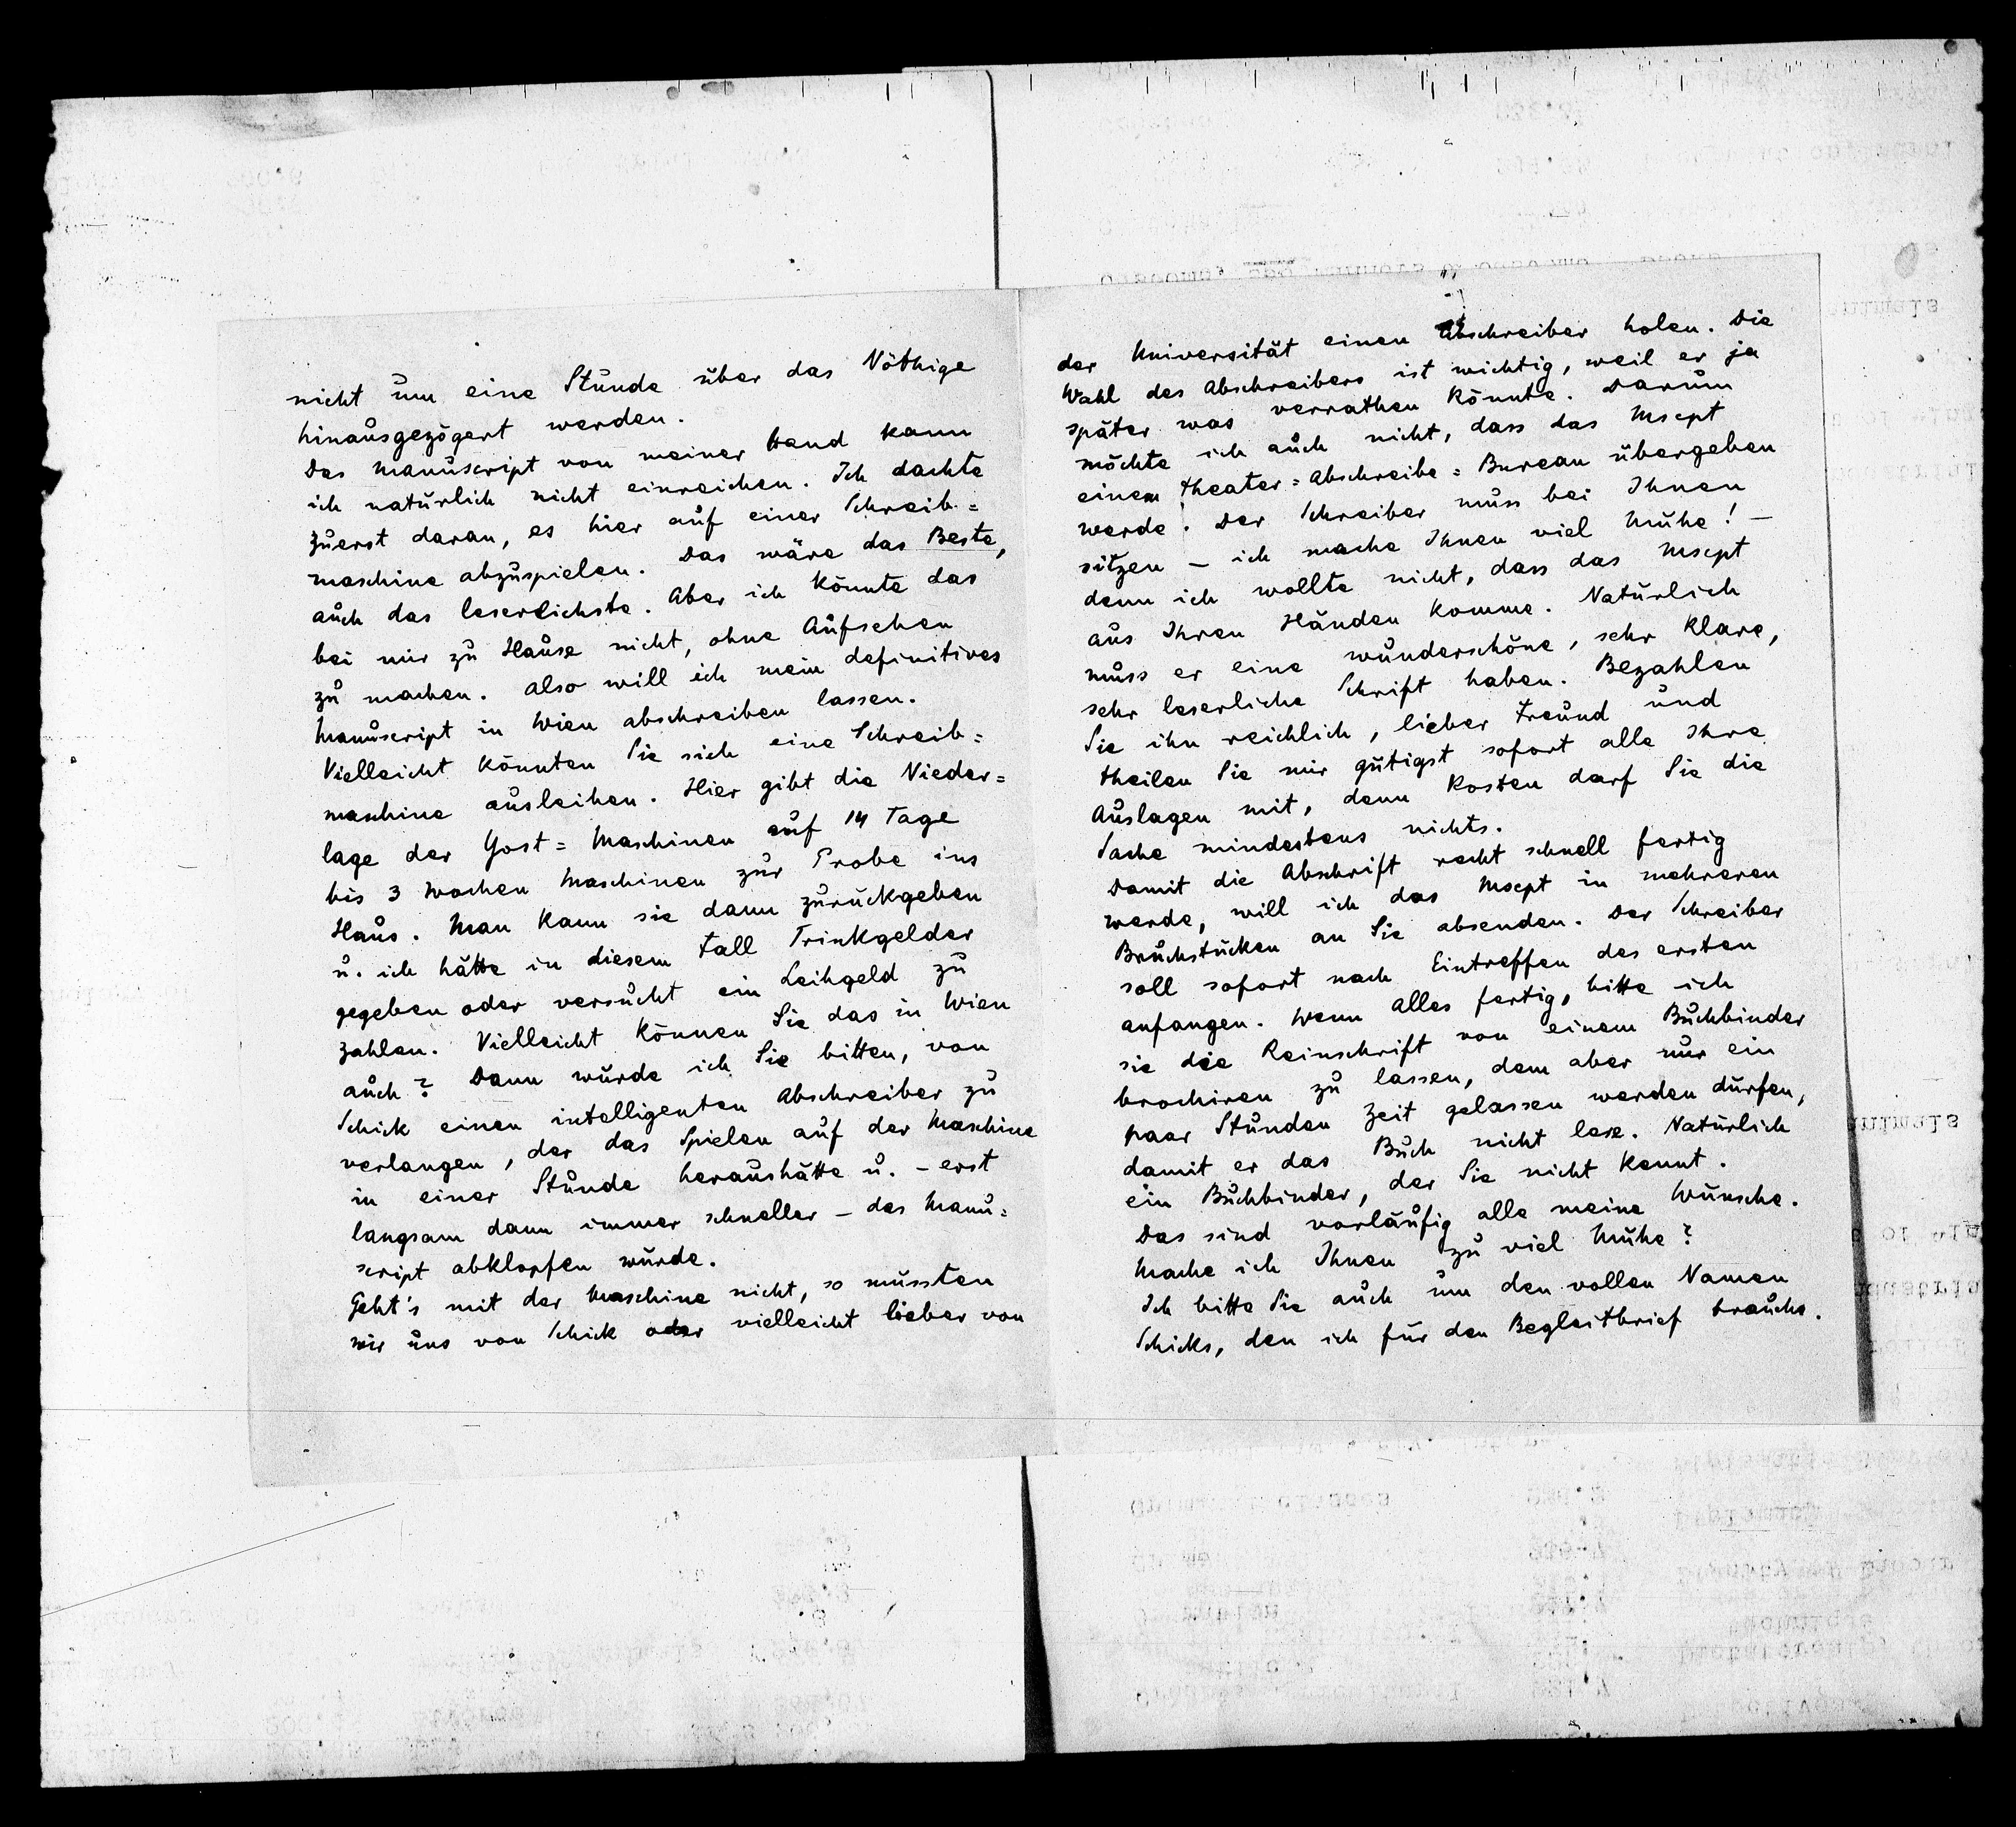 nicht um eine Stunde über das Nöthige
hinausgezögert werden.
Das Manuscript von meiner Hand kann
ich natürlich nicht einreichen. Ich dachte
zuerst daran, es hier auf einer Schreib=
maschine abzuspielen. Das wäre das Beste,
auch das leserlichste. Aber ich könnte das
bei mir zu Hause nicht, ohne Aufsehen
zu machen. Also will ich mein definitives
Manuscript in Wien abschreiben lassen.
Vielleicht könnten Sie sich eine Schreib=
maschine ausleihen. Hier gibt die Nieder=
lage der Yost=Maschinen auf 14 Tage
bis 3 Wochen Maschinen zur Probe ins
Haus. Man kann sie dann zurückgeben
u. ich hätte in diesem Fall Trinkgelder
gegeben oder versucht ein Leihgeld zu
zahlen. Vielleicht können Sie das in Wien
auch? Dann würde ich Sie bitten, von
Schick einen intelligenten Abschreiber zu
verlangen, der das Spielen auf der Maschine
in einer Stunde heraushätte u. – erst
langsam dann immer schneller – das Manu=
script abklopfen würde.
Geht's mit der Maschine nicht, so müssten
wir uns von Schick oder vielleicht lieber von
der Universität einen Abschreiber holen. Die
Wahl des Abschreibers ist wichtig, weil er ja
später was verrathen könnte. Darum
möchte ich auch nicht, dass das Mscpt
einem Theater=Abschreibe=Bureau übergeben
werde. Der Schreiber muss bei Ihnen
sitzen – ich mache Ihnen viel Mühe! –
denn ich wollte nicht, dass das Mscpt
aus Ihren Händen komme. Natürlich
muss er eine wunderschöne, sehr klare,
sehr leserliche Schrift haben. Bezahlen
Sie ihn reichlich, lieber Freund und
theilen Sie mir gütigst sofort alle Ihre
Auslagen mit, denn kosten darf Sie die
Sache mindestens nichts.
Damit die Abschrift recht schnell fertig
werde, will ich das Mscpt in mehreren
Bruchstücken an Sie absenden. Der Schreiber
soll sofort nach Eintreffen des ersten
anfangen. Wenn alles fertig, bitte ich
sie die Reinschrift von einem Buchbinder
brochiren zu lassen, dem aber nur ein
paar Stunden Zeit gelassen werden dürfen,
damit er das Buch nicht lese. Natürlich
ein Buchbinder, der Sie nicht kennt.
Das sind vorläufig alle meine Wünsche.
Mache ich Ihnen zu viel Mühe?
Ich bitte Sie auch um den vollen Namen
Schicks, den ich für den Begleitbrief brauche.